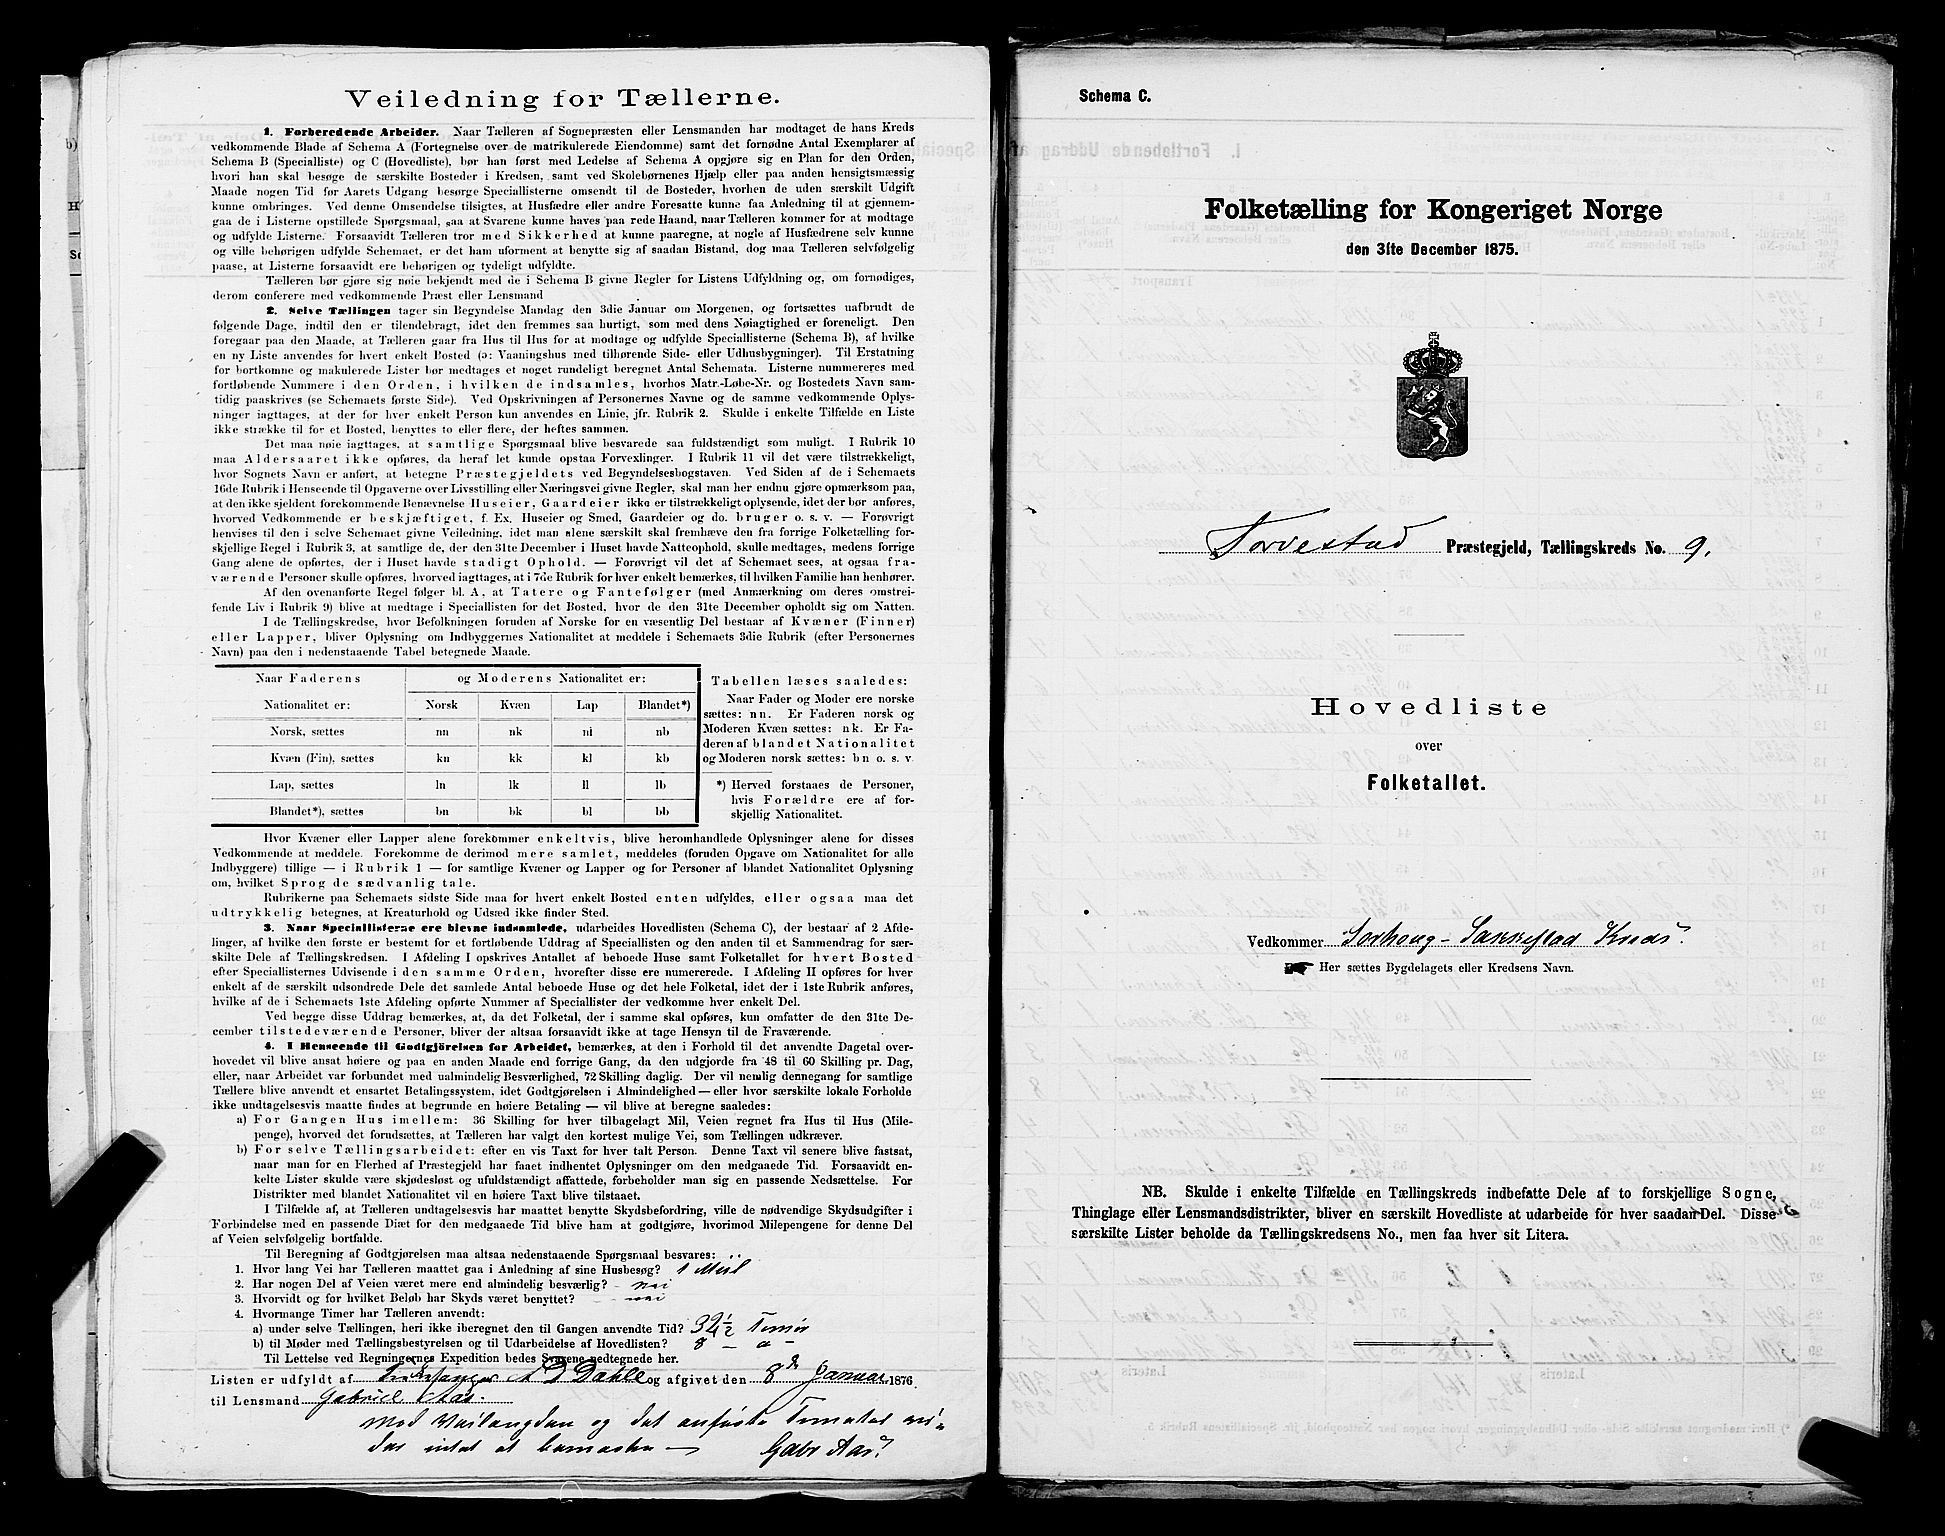 Veiledning for Tællerne.
1. Forberedende Arbeider. Naar Tælleren af Sognepræsten eller Lensmanden har modtaget de hans Kreds
vedkommende Blade af Schema A (Fortegnelse over de matrikulerede Eiendomme) samt det fornødne Antal Exemplarer af
Schema B (Specialliste) og C (Hovedliste), bør han først med Ledelse af Schema A opgjøre sig en Plan for den Orden,
hvori han skal besøge de særskilte Bosteder i Kredsen, samt ved Skolebørnenes Hjælp eller paa anden hensigtsmæssig
Maade nogen Tid før Aarets Udgang besørge Speciallisterne omsendt til de Bosteder, hvorhen de uden særskilt Udgift
kunne ombringes. Ved denne Omsendelse tilsigtes, at Husfædre eller andre Foresatte kunne faa Anledning til at gjennem-
gaa de i Listerne opstillede Spørgsmaal, saa at Svarene kunne haves paa rede Haand, naar Tælleren kommer for at modtage
og udfylde Listerne. Forsaavidt Tælleren tror med Sikkerhed at kunne paaregne, at nogle af Husfædrene selv kunne
og ville behørigen udfylde Schemaet, er det ham uforment at benytte sig af saadan Bistand, dog maa Tælleren selvfølgelig
paase, at Listerne forsaavidt ere behørigen og tydeligt udfyldte.
Tælleren bør gjøre sig nøie bekjendt med de i Schema B givne Regler for Listens Udfyldning og, om fornødiges,
derom conferere med vedkommende Præst eller Lensmand
2. Selve Tællingen tager sin Begyndelse Mandag den 3die Januar om Morgenen, og fortsættes uafbrudt de
følgende Dage, indtil den er tilendebragt, idet den fremmes saa hurtigt, som med dens Nøiagtighed er foreneligt. Den
foregaar paa den Maade, at Tælleren gaar fra Hus til Hus for at modtage og udfylde Speciallisterne (Schema B), af hvilke
en ny Liste anvendes for hvert enkelt Bosted (ɔ: Vaaningshus med tilhørende Side- eller Udhusbygninger). Til Erstatning
for bortkomne og makulerede Lister bør medtages et noget rundeligt beregnet Antal Schemata. Listerne nummereres med
fortløbende Nummere i den Orden, i hvilken de indsamles, hvorhos Matr.-Løbe-Nr. og Bostedets Navn sam-
tidig paaskrives (se Schemaets første Side). Ved Opskrivningen af Personernes Navne og de samme vedkommende Oplys-
ninger iagttages, at der for hver enkelt Person kun anvendes en Linie, jfr. Rubrik 2. Skulde i enkelte Tilfælde en Liste
ikke strække til for et Bosted, benyttes to eller flere, der heftes sammen.
Det maa nøie iagttages, at samtlige Spørgsmaal blive besvarede saa fuldstændigt som muligt. I Rubrik 10
maa Aldersaaret ikke opføres, da heraf let kunde opstaa Forvexlinger. I Rubrik 11 vil det være tilstrækkeligt,
hvor Sognets Navn er anført, at betegne Præstegjeldets ved Begyndelsesbogstaven. Ved Siden af de i Schemaets
16de Rubrik i Henseende til Opgaverne over Livsstilling eller Næringsvei givne Regler, skal man her endnu gjøre opmærksom paa,
at den ikke sjeldent forekommende Benævnelse Huseier, Gaardeier ikke er tilstrækkeligt oplysende, idet der bør anføres,
hvorved Vedkommende er beskjæftiget, f. Ex. Huseier og Smed, Gaardeier og do. bruger o. s. v. — Forøvrigt
henvises til den i selve Schemaet givne Veiledning, idet man alene særskilt skal fremhæve den fra forrige Folketælling for-
skjellige Regel i Rubrik 3, at samtlige de, der den 31te December i Huset havde Natteophold, skulle medtages, medens forrige
Gang alene de opførtes, der i Huset havde stadigt Ophold. — Forøvrigt vil det af Schemaet sees, at ogsaa fra-
værende Personer skulle opføres, hvorved iagttages, at i 7de Rubrik for hver enkelt bemærkes, til hvilken Familie han henhører.
Af den ovenanførte Regel følger bl. A, at Tatere og Fantefølger (med Anmærkning om deres omstrei-
fende Liv i Rubrik 9) blive at medtage i Speciallisten for det Bosted, hvor de den 31te December opholdt sig om Natten.
I de Tællingskredse, hvor Befolkningen foruden af Norske for en væsentlig Del bestaar af Kvæner (Finner)
eller Lapper, bliver Oplysning om Indbyggernes Nationalitet at meddele i Schemaets 3die Rubrik (efter Personernes
Navn) paa den i nedenstaaende Tabel betegnede Maade.
Naar Faderens og Moderens Nationalitet er:
Nationalitet er: Norsk Kvæn Lap Blandet*)
Norsk, sættes nn nk nl nb
Kvæn (Fin), sættes kn kk kl kb
Lap, sættes ln lk ll lb
Blandet*), sættes bn bk bl bb
Tabellen læses saaledes:
Naar Fader og Moder ere norske
sættes: nn. Er Faderen norsk og
Moderen Kvæn sættes: nk. Er Fa-
deren af blandet Nationalitet
og Moderen norsk sættes: bn o. s. v
*) Herved forstaaes de Personer,
hvis Forældre ere af for-
skjellig Nationalitet.
Hvor Kvæner eller Lapper alene forekommer enkeltvis, blive heromhandlede Oplysninger alene for disses
Vedkommende at meddele. Forekomme de derimod mere samlet, meddeles (foruden Opgave om Nationalitet for alle
Indbyggere) tillige — i Rubrik 1 — for samtlige Kvæner og Lapper og for Personer af blandet Nationalitet Oplysning
om, hvilket Sprog de sædvanlig tale.
Rubrikerne paa Schemaets sidste Side maa for hvert enkelt Bosted enten udfyldes, eller ogsaa maa det
udtrykkelig betegnes, at Kreaturhold og Udsæd ikke finder Sted.
3. Naar Speciallisterne ere blevne indsamlede, udarbeides Hovedlisten (Schema C), der bestaar af 2 Afde-
linger, af hvilke den første er bestemt for et fortløbende Uddrag af Speciallisten og den anden til et Sammendrag for sær-
skilte Dele af Tællingskredsen. I Afdeling I opskrives Antallet af beboede Huse samt Folketallet for hvert Bosted
efter Speciallisternes Udvisende i den samme Orden, hvorefter disse ere numererede. I Afdeling II opføres for hver
enkelt af de særskilt udsondrede Dele det samlede Antal beboede Huse og det hele Folketal, idet der i 1ste Rubrik anføres,
hvilke af de i Schemaets 1ste Afdeling opførte Nummer af Speciallister der vedkomme hver enkelt Del.
Ved begge disse Uddrag bemærkes, at, da det Folketal, der i samme skal opføres, kun omfatter de den 31te De-
cember tilstedeværende Personer, bliver der altsaa forsaavidt ikke at tage Hensyn til de Fraværende.
4. I Henseende til Godtgjörelsen for Arbeidet, bemærkes, at den i Forhold til det anvendte Dagetal over-
hovedet vil blive ansat høiere og paa en anden Maade end forrige Gang, da den udgjorde fra 48 til 60 Skilling pr. Dag,
eller, naar Arbeidet var forbundet med ualmindelig Besværlighed, 72 Skilling daglig. Der vil nemlig dennegang for samtlige
Tællere blive anvendt et ensartet Betalingssystem, idet Godtgjørelsen i Almindelighed — eller hvor særskilte lokale Forholde
ikke undtagelsesvis maatte findes at begrunde en høiere Betaling — vil blive at beregne saaledes:
a) For Gangen Hus imellem: 36 Skilling for hver tilbagelagt Mil, Veien regnet fra Hus til Hus (Mile-
penge), hvorved det forudsættes, at Tælleren har valgt den kortest mulige Vei, som Tællingen udkræver.
b) For selve Tællingsarbeidet: efter en vis Taxt for hver talt Person. Denne Taxt vil senere blive fastsat,
naar man for en Flerhed af Præstegjeld har faaet indhentet Oplysninger om den medgaaede Tid. Forsaavidt en-
kelte Lister skulde være skjødesløst og ufuldstændigt affattede, forbeholder man sig en passende Nedsættelse. For
Distrikter med blandet Nationalitet vil en høiere Taxt blive tilstaaet.
I Tilfælde af, at Tælleren undtagelsesvis har maattet benytte Skydsbefordring, ville de nødvendige Skydsudgifter i
Forbindelse med en passende Diæt for den medgaaede Tid blive ham at godtgjøre, hvorimod Milepengene for denne Del
af Veien selvfølgelig bortfalde.
Til Beregning af Godtgjørelsen maa altsaa nedenstaaende Spørgsmaal besvares:
1. Hvor lang Vei har Tælleren maattet gaa i Anledning af sine Husbesøg? 1 Miil
2. Har nogen Del af Veien været mere end almindelig besværlig? - nei
3. Hvorvidt og for hvilket Beløb har Skyds været benyttet? - nei
4. Hvormange Timer har Tælleren anvendt:
a) under selve Tællingen, heri ikke iberegnet den til Gangen anvendte Tid? 39 1/2 Timer
b) til Møder med Tællingsbestyrelsen og til Udarbeidelse af Hovedlisten? 8 — " —
Til Lettelse ved Regningernes Expedition bedes Svarene nedtegnede her.
Listen er udfyldt af A D Dahle og afgivet den 8de Januar 1876
til Lensmand Gabriel Aas.
Mod Veilængden og det anførte Timetal vi-
des intet at bemærke — Gabr Aas.
Schema C.
Folketælling for Kongeriget Norge
den 31te December 1875.
Torvestad Præstegjeld, Tællingskreds No. 9.
Hovedliste
over
Folketallet.
Vedkommer Sørhoug - Sakkestad Kreds.
Her sættes Bygdelagets eller Kredsens Navn.
NB. Skulde i enkelte Tilfælde en Tællingskreds indbefatte Dele af to forskjellige Sogne,
Thinglage eller Lensmandsdistrikter, bliver en særskilt Hovedliste at udarbeide for hver saadan Del. Disse
særskilte Lister beholde da Tællingskredsens No., men faa hver sit Litera.